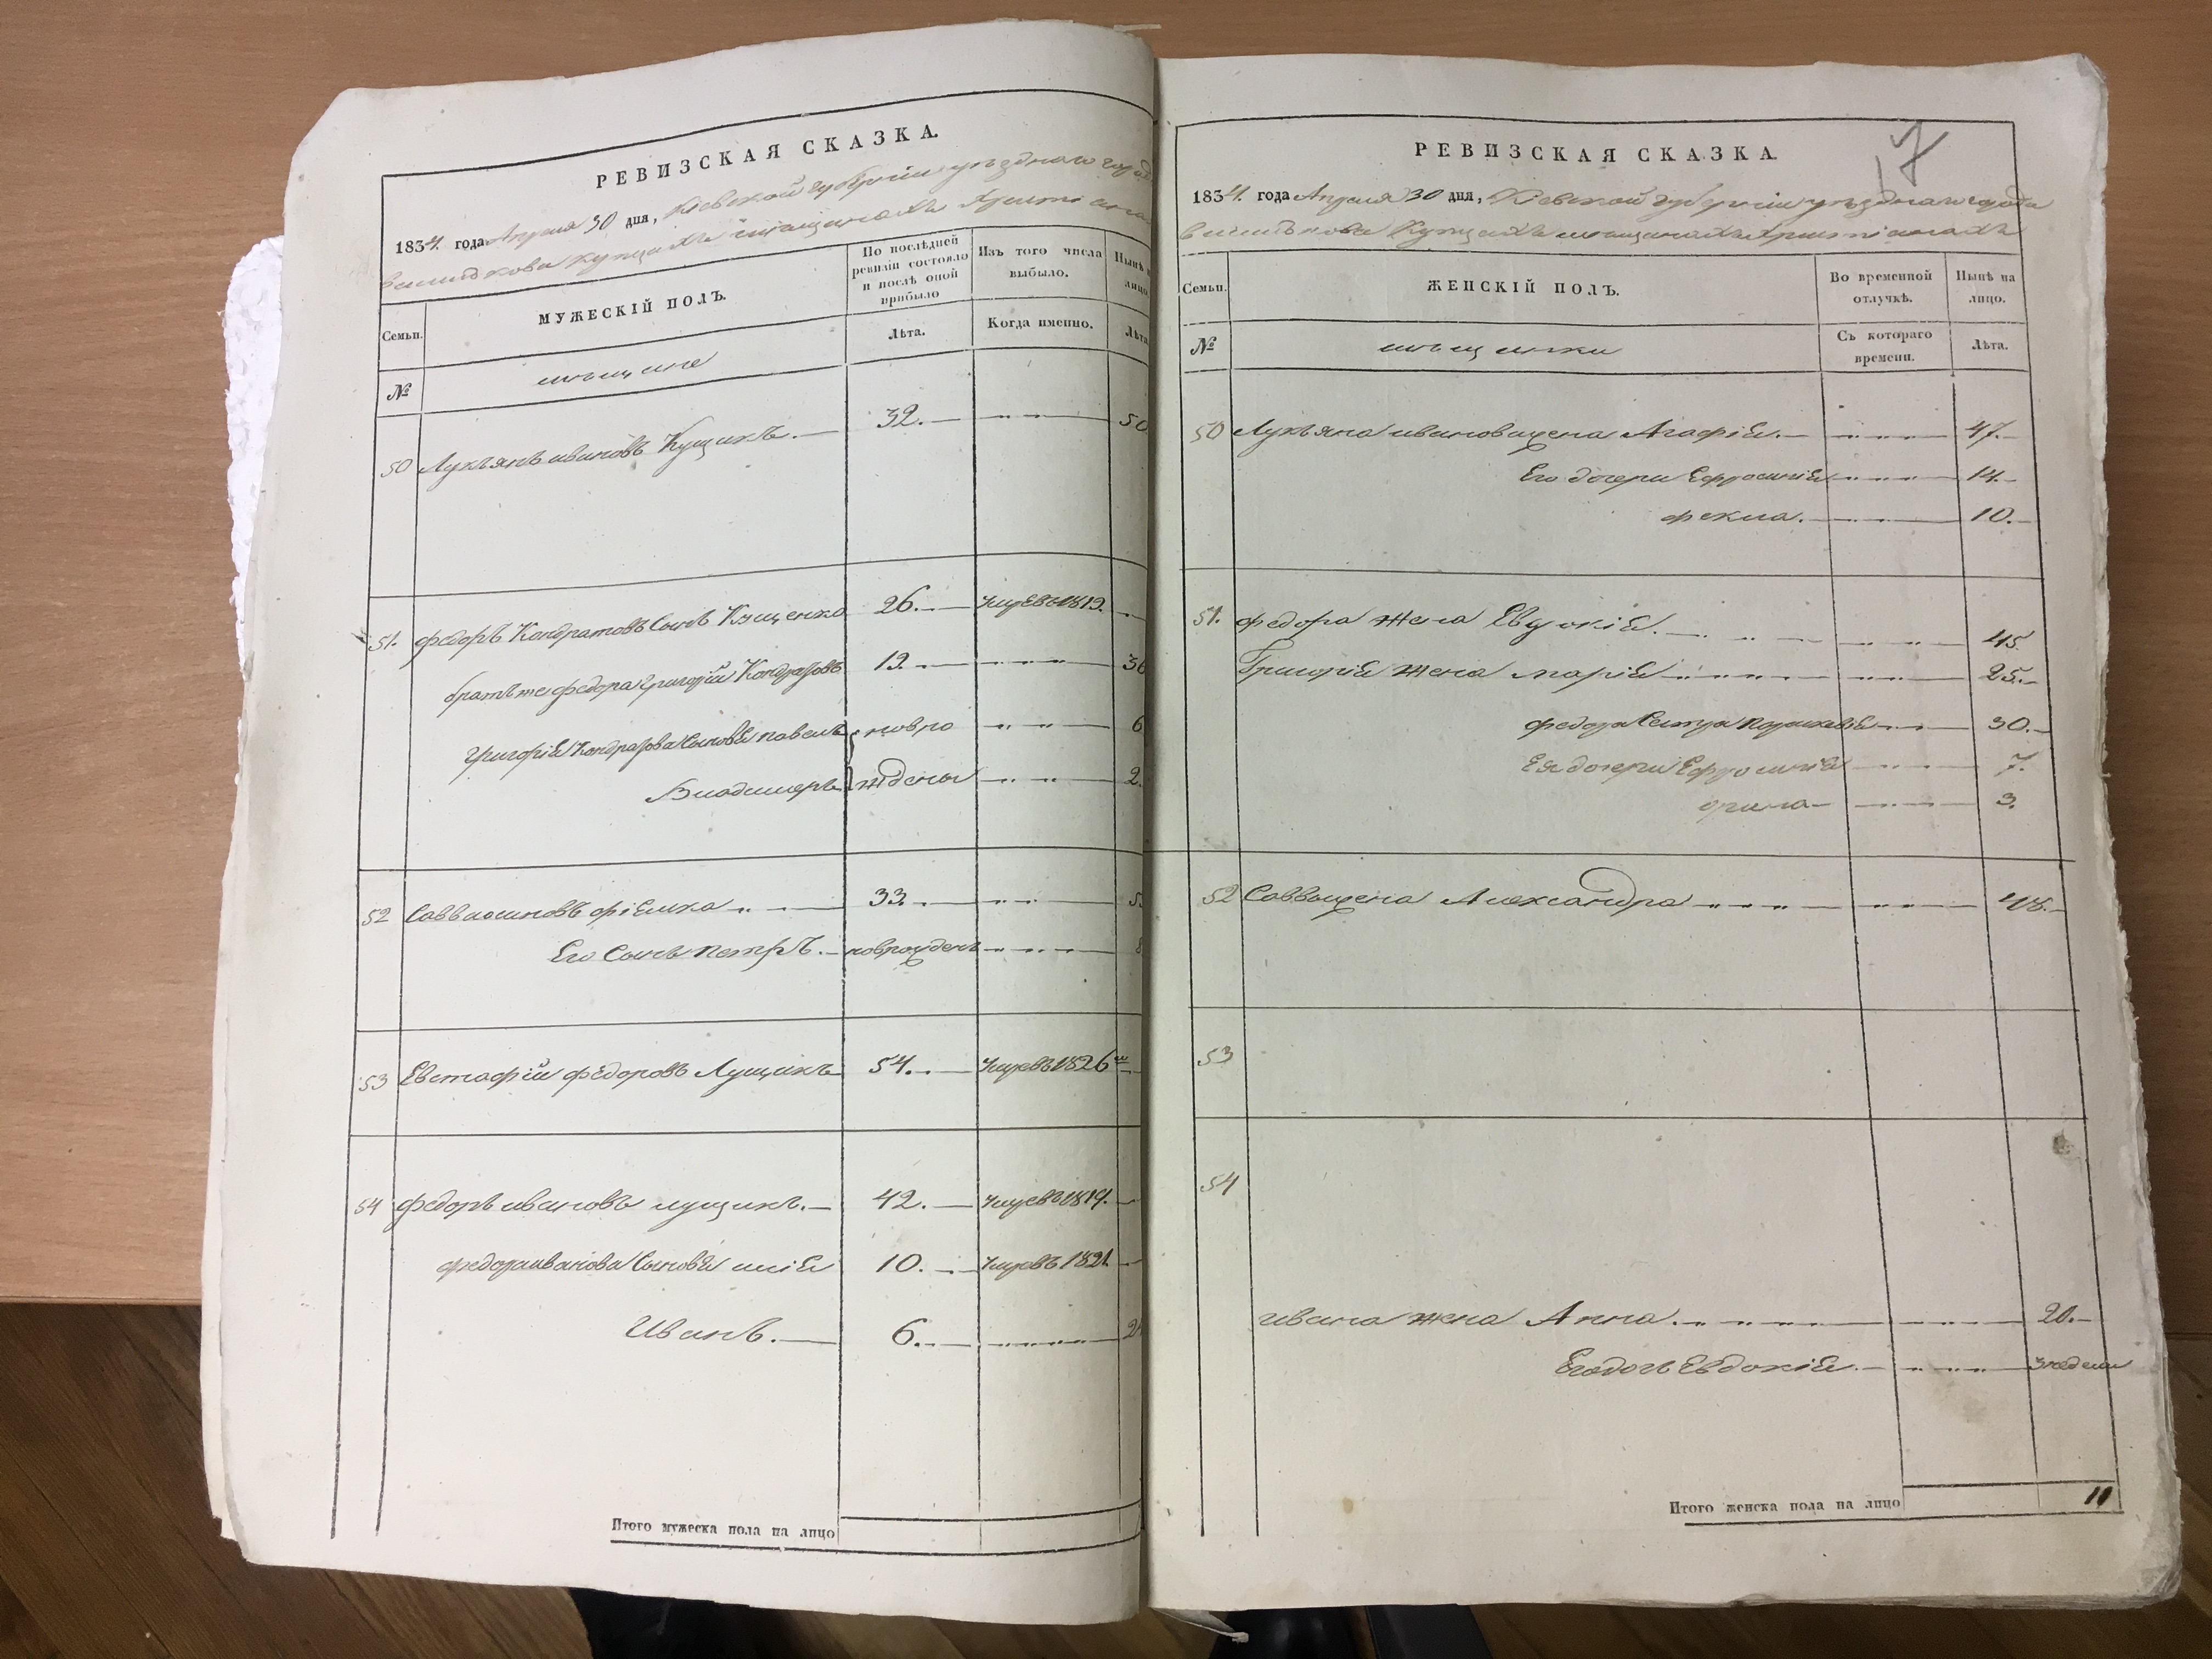 РЕВИЗСКАЯ СКАЗКА.
1834. года Апреля 30 дня, Кіевской губерніи уъзднаго города
василькова купцахъ мещанахъ христіанахъ
Семьи.
МУЖЕСКІЙ ПОЛЪ.
По послѣдней ревизіи состояло и послѣ оной прибыло
Изъ того числа выбыло.
Нынѣ
№
мещане
Лѣта.
Когда именно.
Лѣта
50 Лукъянъ ивановъ Кущикъ.— 32.— 50
51. федоръ Кондратовъ Сынъ Кущенко 26.— умре въ 1819.
братъ же федора григорій Кондратовъ 19.— 36
григорія Кондратова Сыновя павелъ новро 6
Владимеръ ждены 2.
52 Савва 33.
Его Сынъ петръ.— новрожденъ
53 Евстафій федоровъ Лущикъ 54.— умре въ 1826м
54 федоръ ивановъ лущикъ.— 42.— умре въ 1814.
федора иванова Сыновя илія 10.— умре въ 1821.
Иванъ.— 6.—
Итого мужеска пола на лицо
РЕВИЗСКАЯ СКАЗКА.
17
1834. года Апреля 30 дня, Кіевской губерніи уъзднаго города
василькова Купцахъ мещанахъ христіанахъ
Семьи.
ЖЕНСКІЙ ПОЛЪ.
Во временной отлучкѣ.
Нынѣ на лицо.
№
мещанки
Съ котораго времени.
Лѣта.
50 Лукъяна иванова жена Агафія.— 47.—
Его дочери Ефросинія 14.—
фекла.— 10.—
51. федора жена Евдокія.— 45.
Григорія жена марія 25.—
федора Сестра параскевія 30.—
Ея дочери Ефросинія 7.
орина— 3.
52 Саввы жена Александра 48.—
53
54
ивана жена Анна. 20.—
Его дочь Евдокія.— 3 недели
Итого женска пола на лицо 11